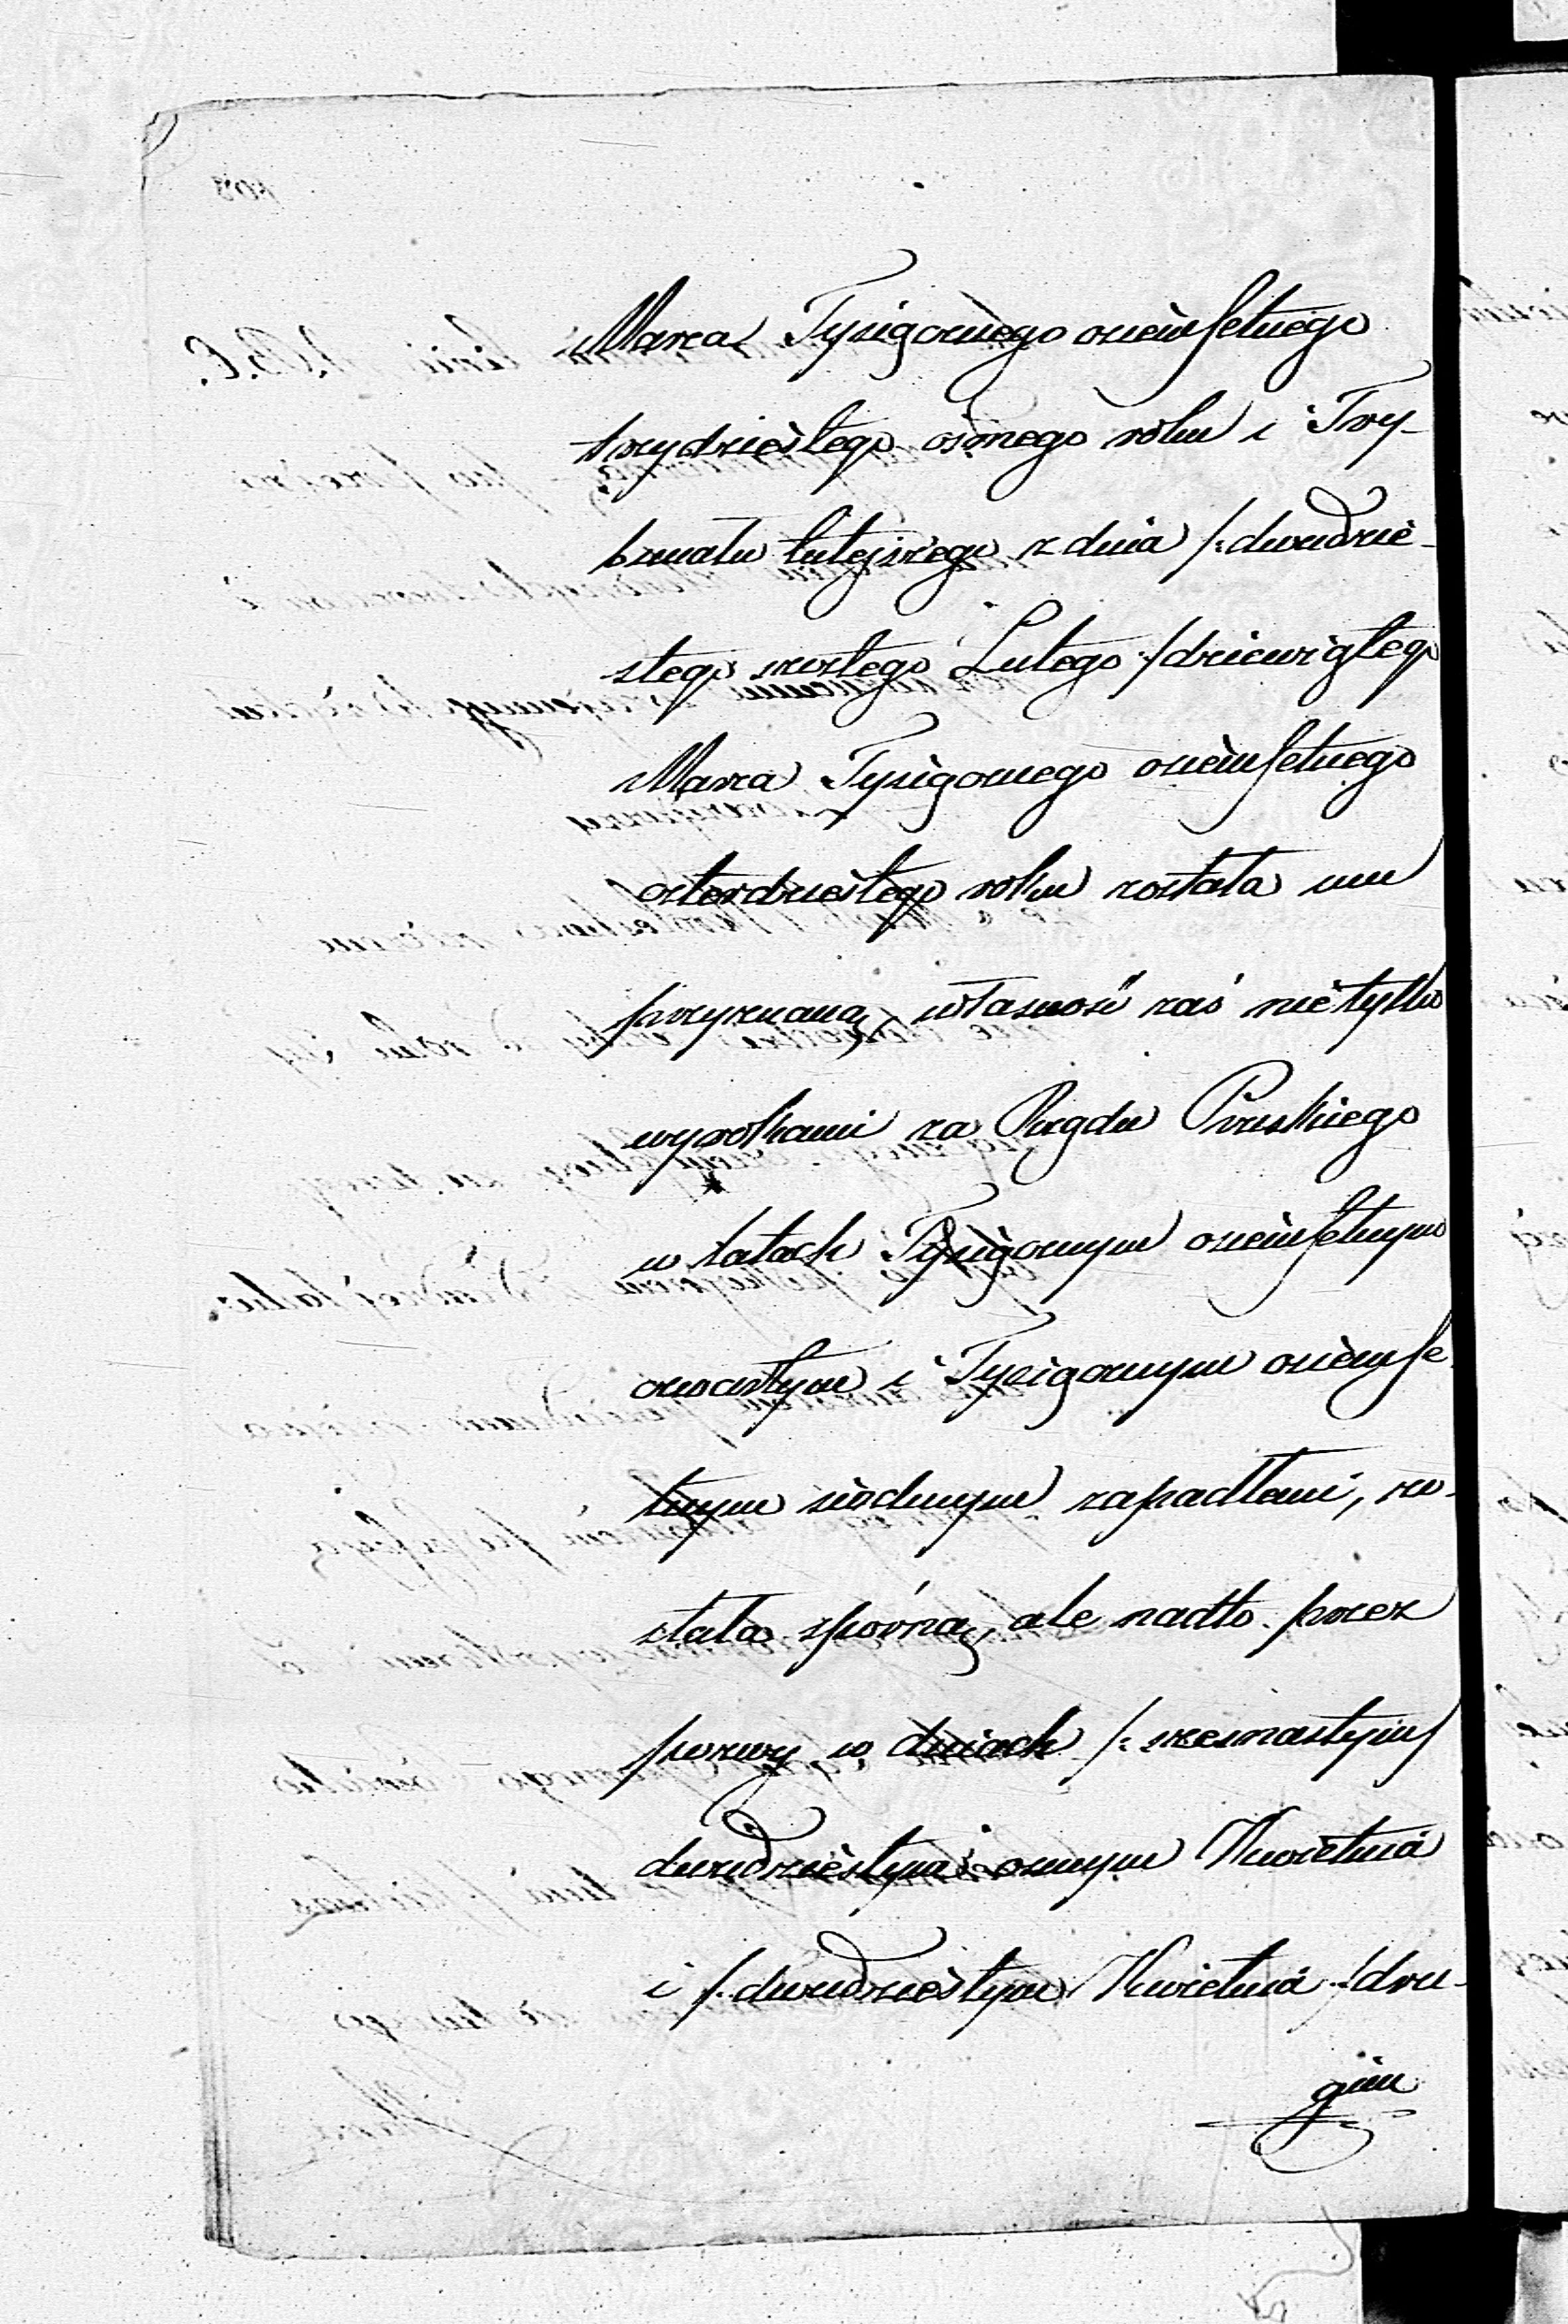 Marca Tysiącznego ośmsetnego
trzydziestego ósmego roku i Try-
bunału tutejszego z dnia /: dwudzie-
stego szóstego Lutego :/ dziewiątego
Marca Tysiącznego ośmsetnego
czterdziestego roku została mu
przyznaną, własność zaś nietylko
wyrokami za Rządu Pruskiego
w latach Tysiącznym ośmsetnym
czwartym i Tysiącznym ośmse-
tnym siódmym zapadłemi, zo-
stała sporną, ale nadto przez
pozwy w dniach /: szesnastym
dwudziestym ósmym Kwietnia
i /: dwudziestym Kwietnia :/ dru-
gim